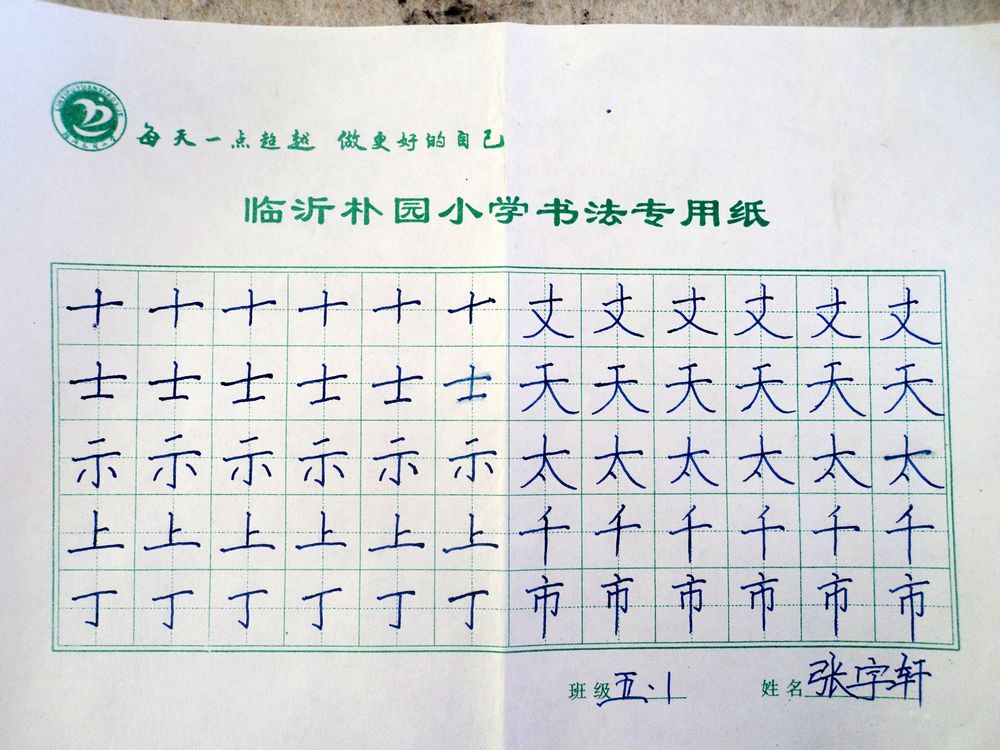 每天一点超越 做更好的自己
临沂朴园小学书法专用纸
十十十十十十丈丈丈丈丈丈
士士士士士士天天天天天天
示示示示示示太太太太太太
上上上上上上千千千千千千
丁丁丁丁丁丁市市市市市市
班级 五.1 姓名 张字轩